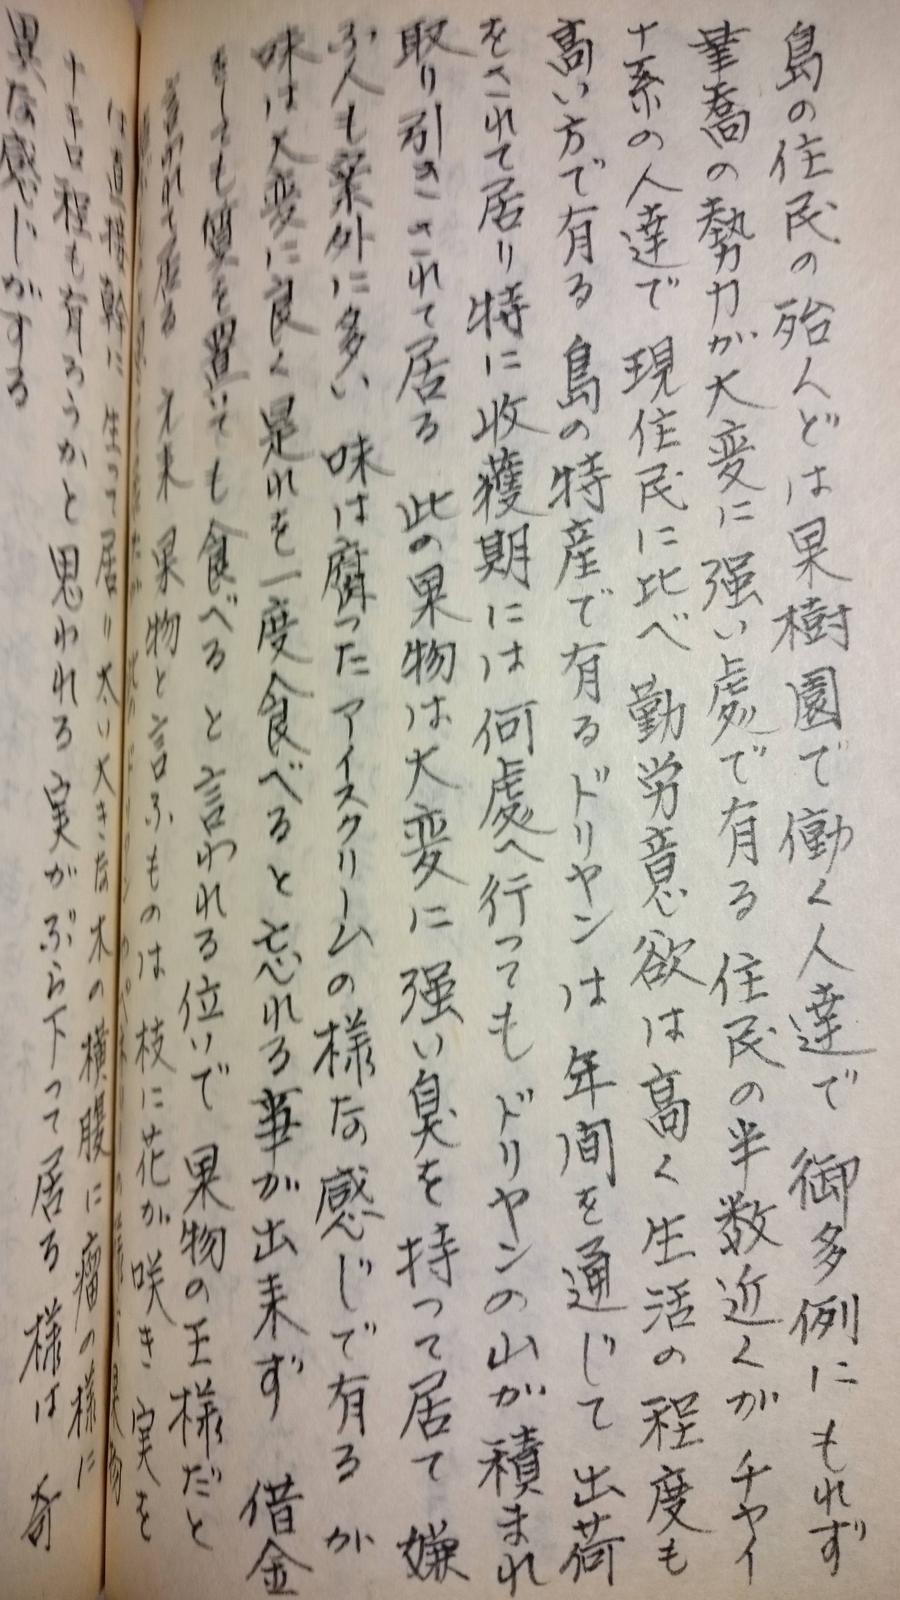 島の住民の殆んどは果樹園で働く人達で 御多例にもれず
華喬の勢力が大変に强い處で有る 住民の半数近くがチャイ
ナ系の人達で 現住民に比べ 勤労意欲は高く 生活の程度も
高い方で有る 島の特産で有るドリヤンは 年間を通じて 出荷
をされて居り 特に 收獲期には 何處へ行っても ドリヤンの山が 積まれ
取り引きされて居る 此の果物は大変に 强い臭を 持って居て 嫌
ふ人も案外に多い 味は腐ったアイスクリームの様な感じで有る が
味は大変に良く 是れを一度食べると忘れる事が出来ず 借金
をしても 質を置いても 食べる と言われる位いで 果物の王様だと
言われて居る 才来 果物と言ふものは 枝に花が咲き 実を
は直接幹に 生って居り 太い大きな木の横腹に瘤の様に
十キロ程も有ろうかと思われる 実がぶら下って居る 様は 奇
異な感じがする